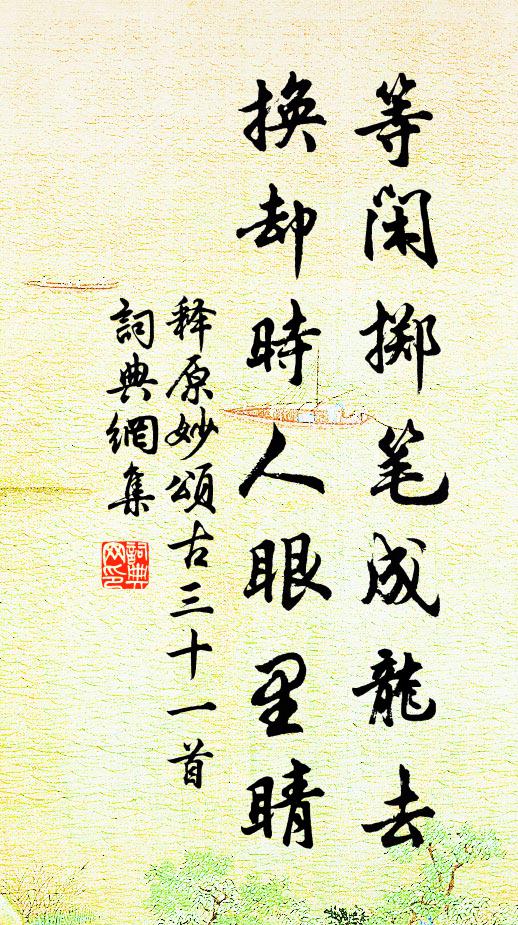 等闲掷笔成龍去
換却時人眼里睛
释原妙頌古三十一首
詞典網集
詞典
网印